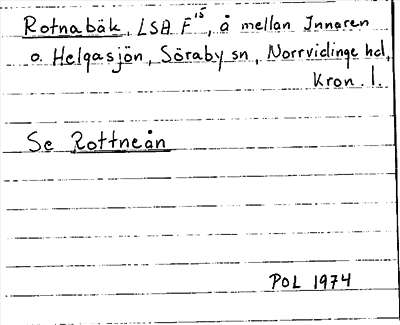 Rotnabäk, LSA F¹⁵, å mellan Innaren
o. Helgasjön, Söraby sn, Norrvidinge hd,
Kron. l.
Se Rottneån
POL 1974